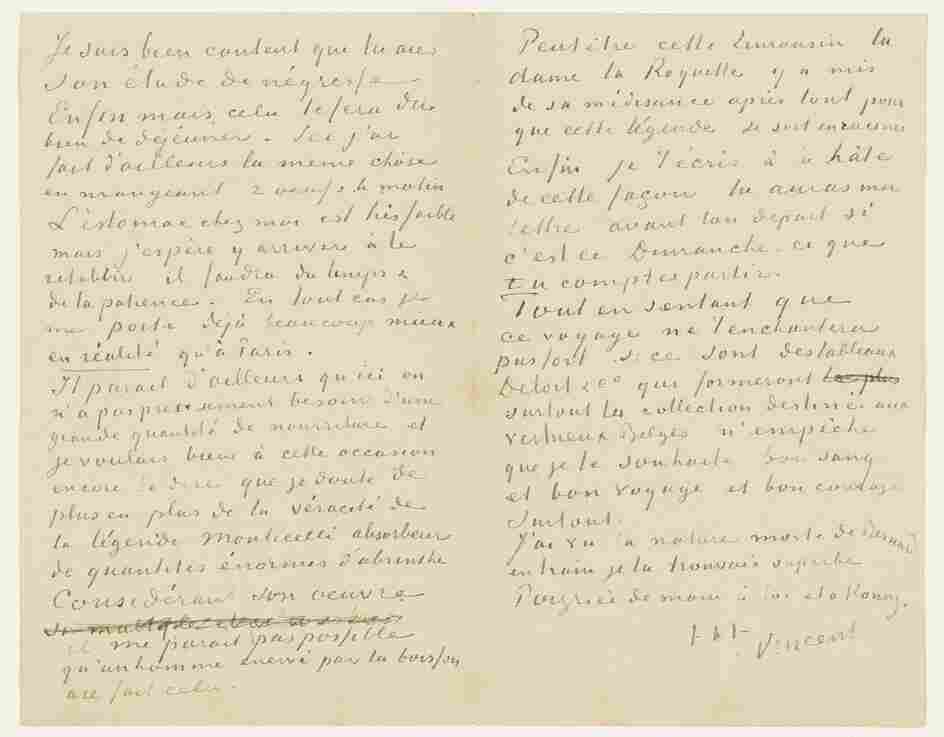 Je suis bien content que tu aies
son étude de négresse
Enfin mais celà te fera du
bien de déjeuner. Ici j'ai
fait d'ailleurs la meme chose
en mangeant 2 oeufs le matin
L'estomac chez moi est très faible
mais j'espère y arriver à le
retablir il faudra du temps &
de la patience. En tout cas je
me porte déjà beaucoup mieux
en réalité qu'à Paris.
Il parait d'ailleurs qu'ici on
n'a pas precisement besoin d'une
grande quantité de nourriture et
je voulais bien à cette occasion
encore te dire que je doute de
plus en plus de la véracité de
la légende Monticelli absorbeur
de quantités énormes d'absinthe
Considérant son oeuvre
il me parait pas possible
qu'un homme enervé par la boisson
aie fait celà.
Peut être cette Limousin la
dame la Roquette y a mis
de sa médisance après tout pour
que cette légende se soit enracinée
Enfin je t'écris à la hâte
de cette façon tu auras ma
lettre avant ton depart si
c'est ce Dimanche-ci que
tu comptes partir.
Tout en sentant que
ce voyage ne t'enchantera
pas fort si ce sont des tableaux
Detoil &c° qui formeront les plus
surtout la collection destinée aux
vertueux Belges n'empèche
que je te souhaite bon sang
et bon voyage et bon courage
surtout.
J'ai vu la nature morte de Bernard
en train je la trouvais superbe
Poignée de main à toi et à Koning.
t. à t.
Vincent